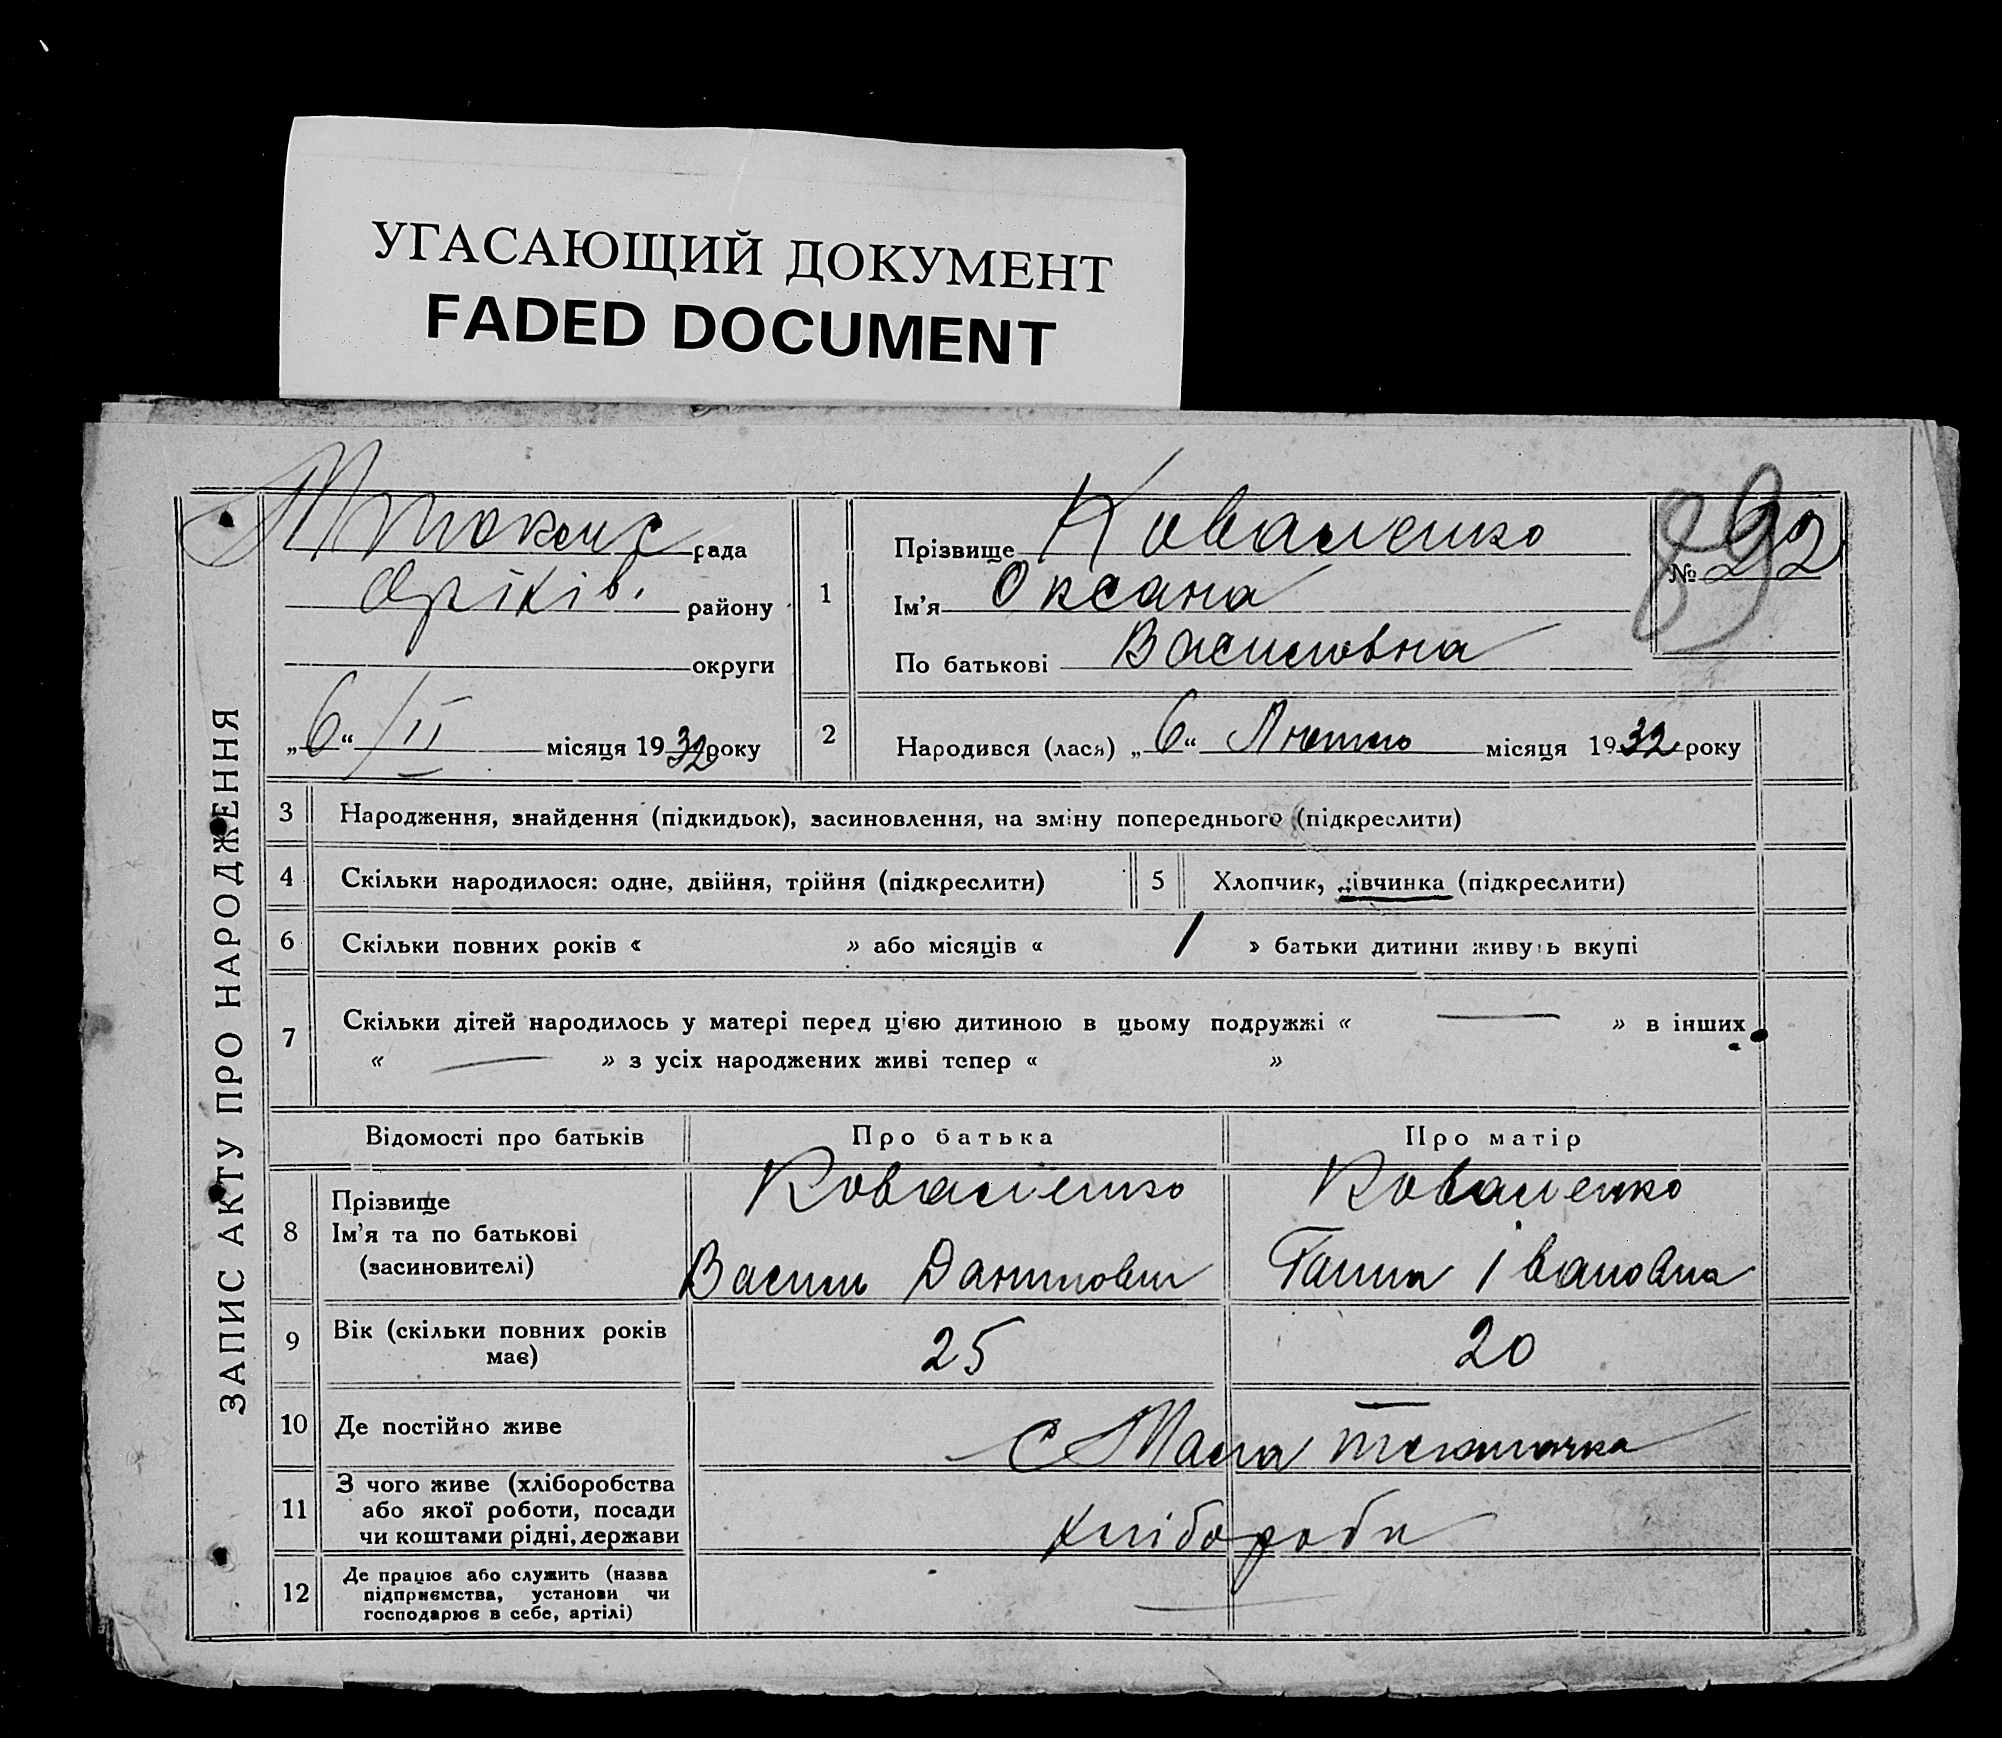 УГАСАЮЩИЙ ДОКУМЕНТ
FADED DOCUMENT
ЗАПИС АКТУ ПРО НАРОДЖЕННЯ
рада
Оріхів. району
округи
„6“ /II місяця 1932 року
1
Прізвище Коваленко
Ім’я Оксана
По батькові Василовна
№ 292
89
2 Народився (лася) „6“ Лютого місяця 1932 року
3 Народження, знайдення (підкидьок), засиновлення, на зміну попереднього (підкреслити)
4 Скільки народилося: одне, двійня, трійня (підкреслити) 5 Хлопчик, дівчинка (підкреслити)
6 Скільки повних років « » або місяців « 1 » батьки дитини живуть вкупі
7 Скільки дітей народилось у матері перед цією дитиною в цьому подружжі « — » в інших
« — » з усіх народжених живі тепер « »
Відомості про батьків Про батька Про матір
8 Прізвище Коваленко Коваленко
Ім’я та по батькові
(засиновителі) Василь Данилович Ганна Івановна
9 Вік (скільки повних років має) 25 20
10 Де постійно живе с Мала Токмачка
11 З чого живе (хліборобства
або якої роботи, посади
чи коштами рідні, держави хлібороби
12 Де працює або служить (назва
підприємства, установи чи
господарює в себе, артілі) —